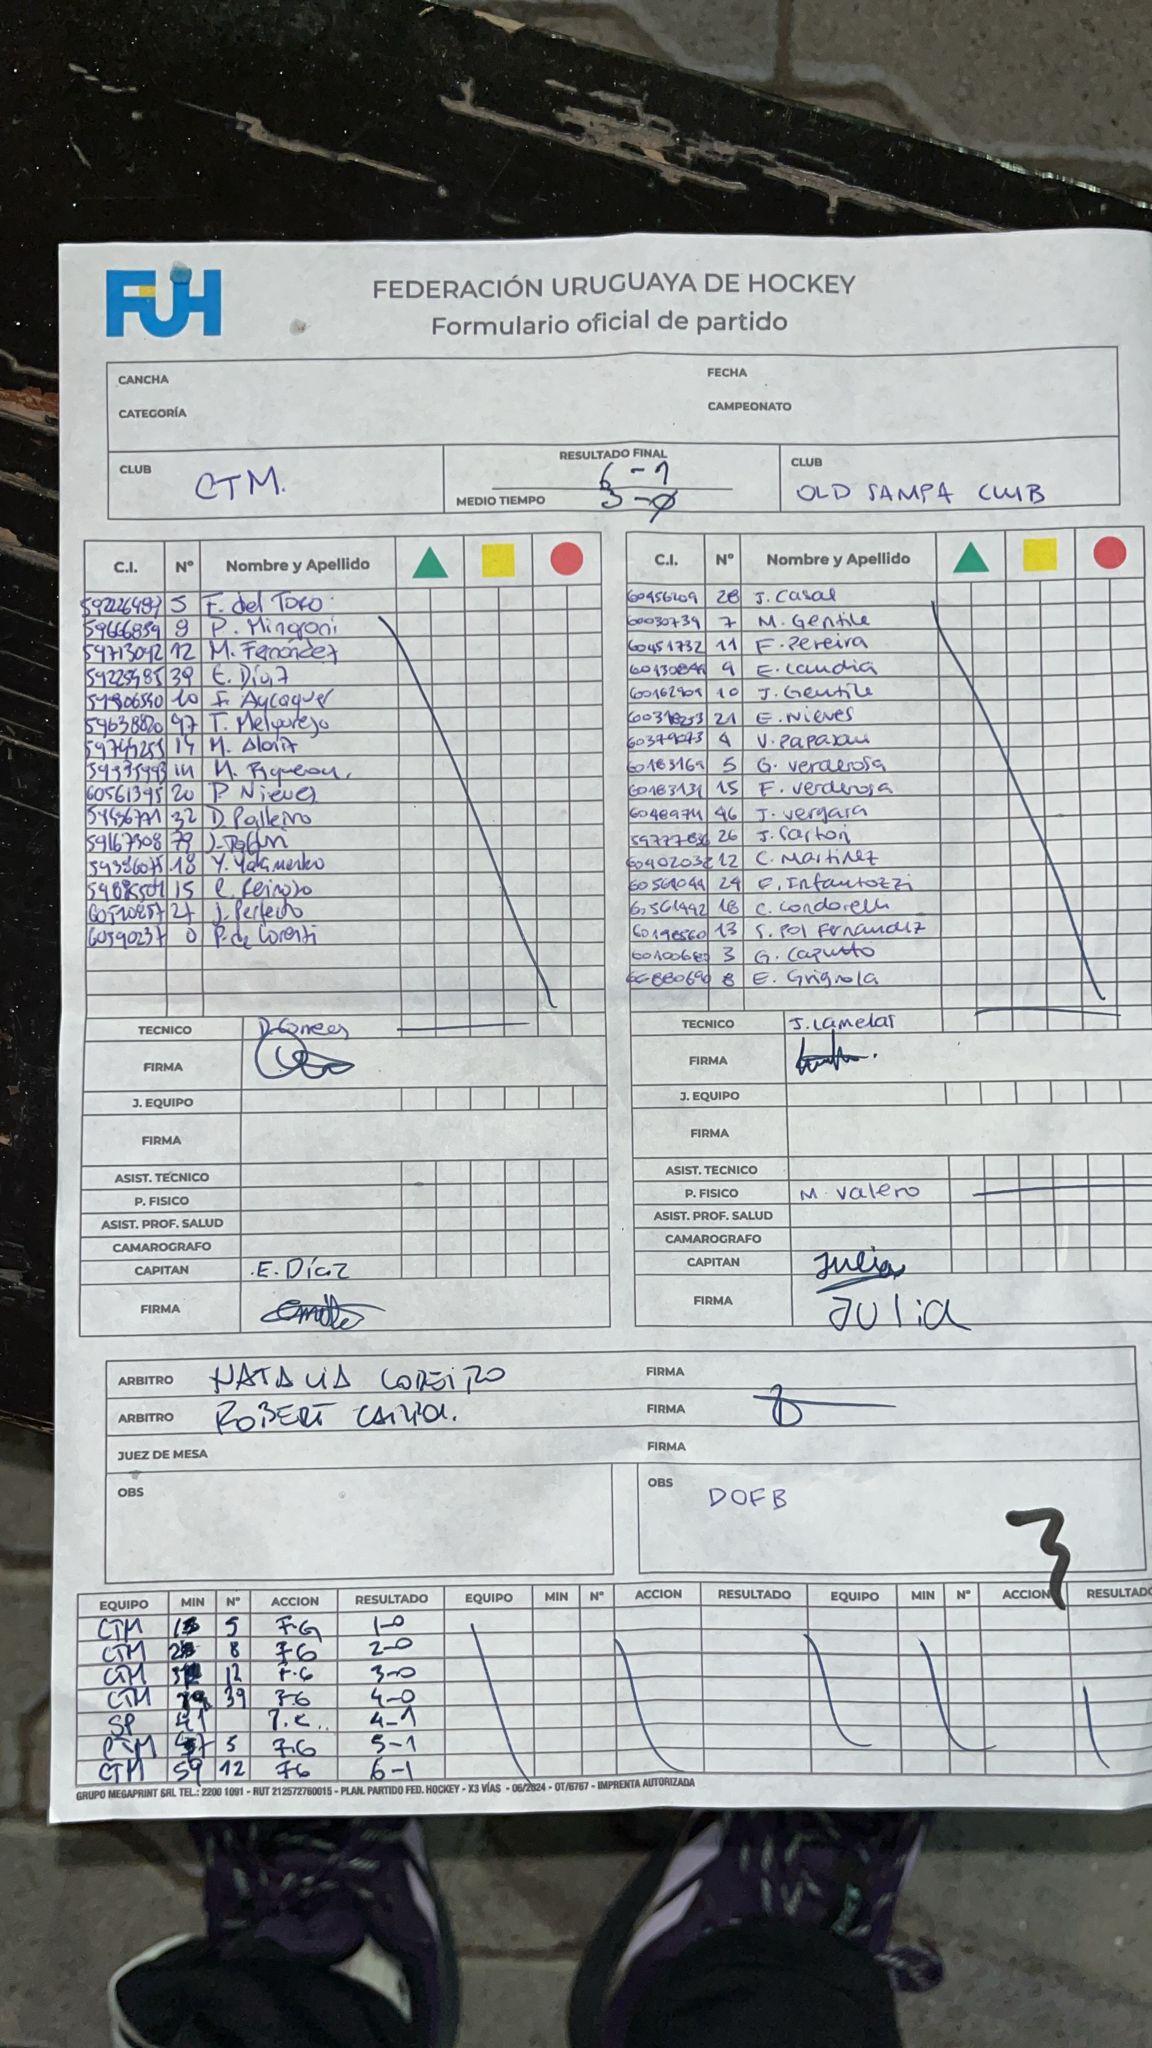 FUH
FEDERACIÓN URUGUAYA DE HOCKEY
Formulario oficial de partido
CANCHA FECHA
CATEGORÍA CAMPEONATO
CLUB CTM. RESULTADO FINAL 6-1 CLUB OLD SAMPA CLUB
MEDIO TIEMPO 3-0
C.I. Nº Nombre y Apellido
5 F. del Toro
59666859 9 P. Mingroni
59713042 12 M. Fernández
59225985 39 E. Díaz
10 F. Aycaguer
59638820 97 T. Melgarejo
14 M. Alonis
M. Piqueron.
60561395 20 P. Nieves
32 D. Palleiro
59167308 79
18 Y. Yakimenko
15 R. Reinoso
27 J. Perfecto
60590237 0 P. de Lorenzi
TECNICO
FIRMA
J. EQUIPO
FIRMA
ASIST. TECNICO
P. FISICO
ASIST. PROF. SALUD
CAMAROGRAFO
CAPITAN .E. Díaz
FIRMA
C.I. Nº Nombre y Apellido
60456209 28 J. Casal
60030739 7 M. Gentile
60451732 11 F. Pereira
9 E. Candia
10 J. Gentile
21 E. Nieves
60379073 4 V. Paparou
60183169 5 G. verderosa
60183131 15 F. verderosa
46 J. vergara
26 J. Sartori
60402032 12 C. Martinez
60569044 24 E. Infantozzi
60561492 18 C. Condorelli
60198560 13 S. Pol Fernandez
3 G. Caputto
8 E. Grignola
TECNICO J. Lamelas
FIRMA
J. EQUIPO
FIRMA
ASIST. TECNICO
P. FISICO M. Valero
ASIST. PROF. SALUD
CAMAROGRAFO
CAPITAN Julia
FIRMA JULIA
ARBITRO NATALIA LOREIRO FIRMA
ARBITRO ROBERT FIRMA
JUEZ DE MESA FIRMA
OBS
OBS DOFB
3
EQUIPO MIN Nº ACCION RESULTADO EQUIPO MIN Nº ACCION RESULTADO EQUIPO MIN Nº ACCION RESULTADO
CTM 5 F.G 1-0
CTM 8 FG 2-0
CTM 12 F.G 3-0
CTM 39 FG 4-0
SP 41 4-1
CTM 5 F.G 5-1
CTM 59 12 FG 6-1
GRUPO MEGAPRINT SRL TEL.: 2200 1091 - RUT 212572760015 - PLAN. PARTIDO FED. HOCKEY - X3 VÍAS - 06/2024 - OT/6767 - IMPRENTA AUTORIZADA